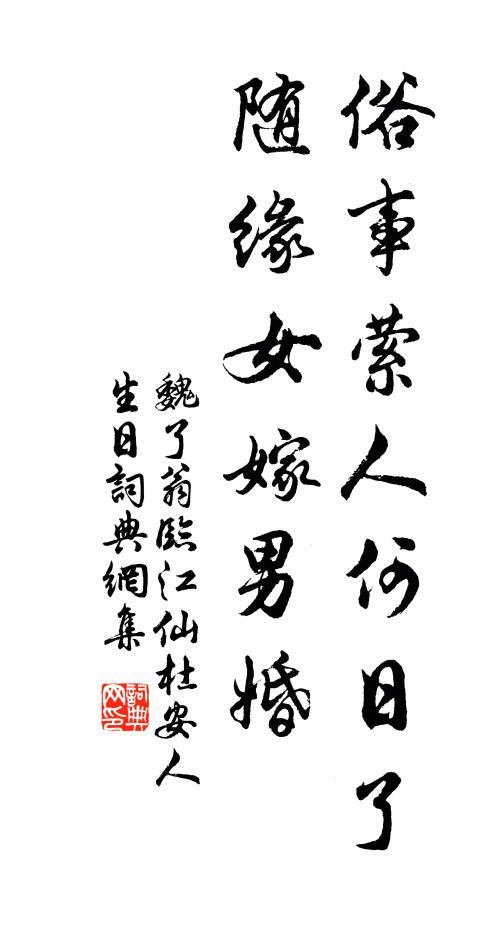 俗事萦人何日了
随缘女嫁男婚
魏了翁臨江仙杜安人
生日詞典網集
詞典网印